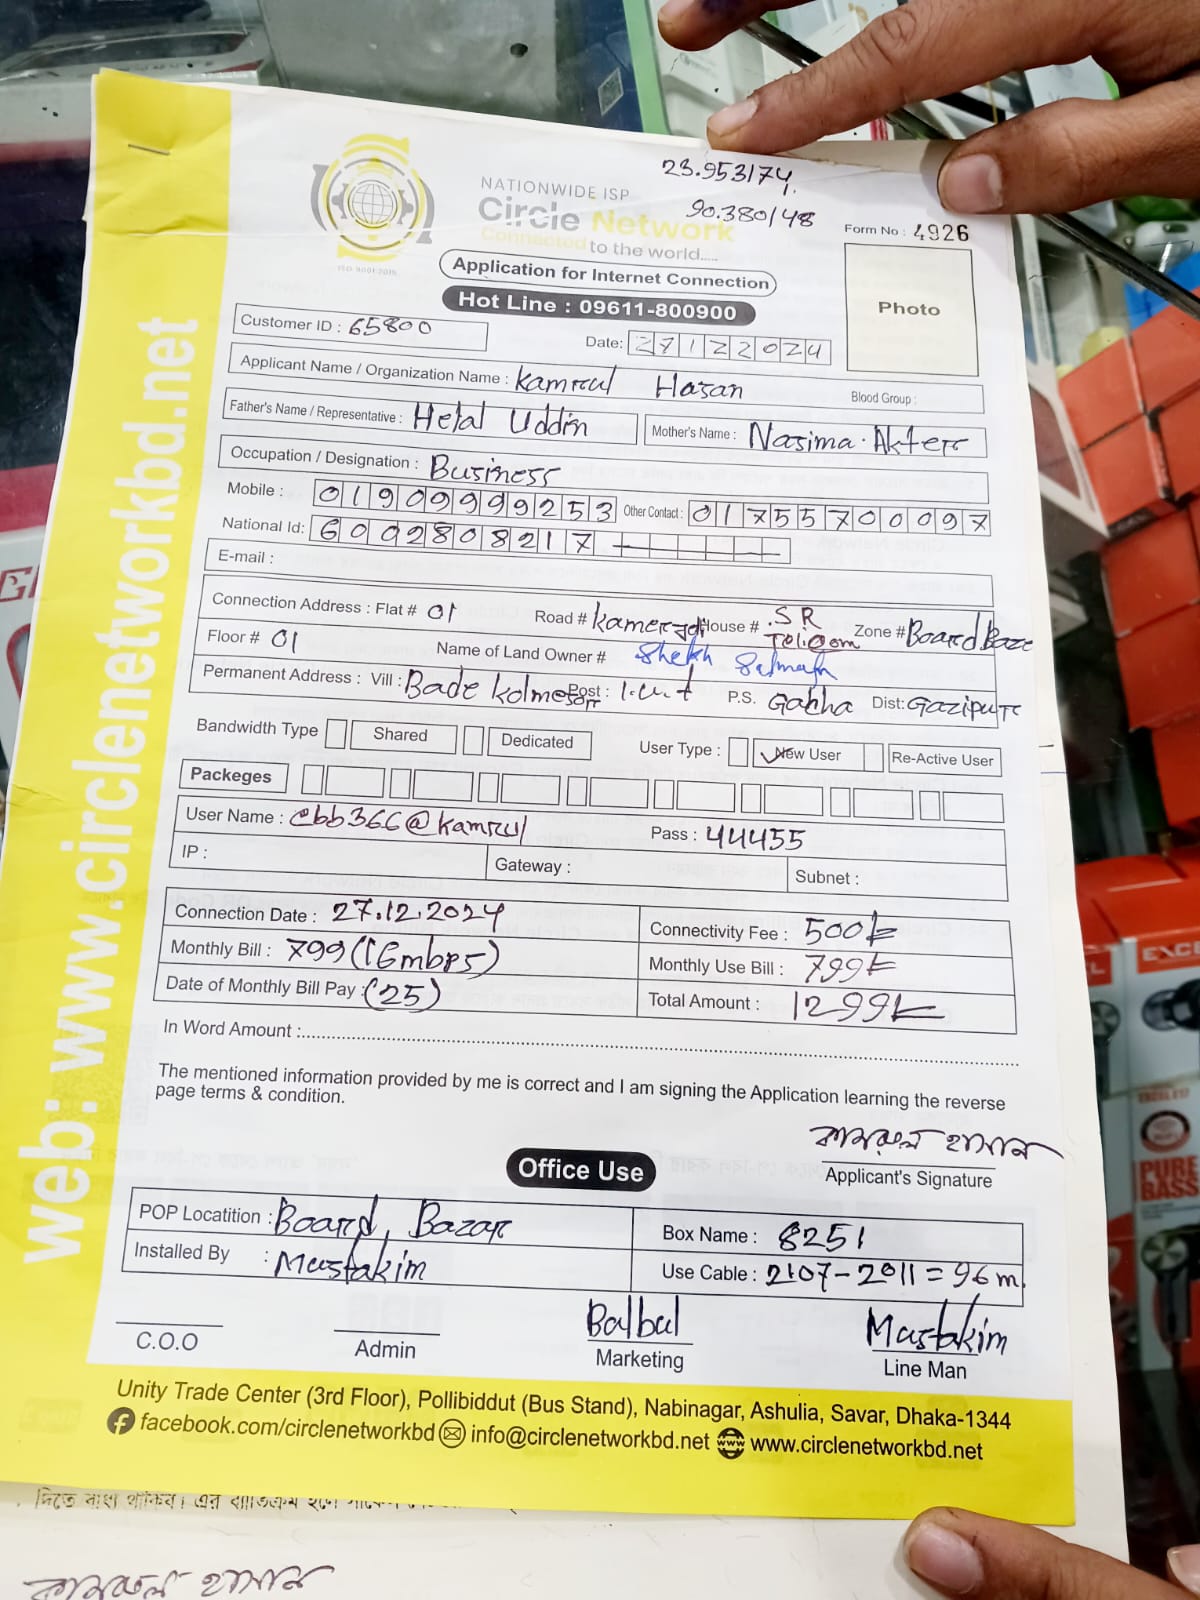 23.953174,
90.380148
NATIONWIDE ISP
Circle Network
Connected to the world.....
ISO 9001:2015
Form No : 4926
Application for Internet Connection
Hot Line : 09611-800900
Photo
Customer ID : 65800
Date: 27122024
Applicant Name / Organization Name : Kamrul Hasan Blood Group :
Father's Name / Representative : Helal Uddin Mother's Name : Nasima Akter
Occupation / Designation : Business
Mobile : 01909999253 Other Contact : 01755700097
National Id: 6002808217
E-mail :
Connection Address : Flat # 01 Road # House # SR Zone # Board Baza
Floor # 01 Name of Land Owner # Shekh
Permanent Address : Vill : Bade Kolmesorr Post : P.S. Gacha Dist: Gazipur
Bandwidth Type Shared Dedicated User Type : New User Re-Active User
Packeges
User Name : cbb366@kamrul Pass : 44455
IP : Gateway : Subnet :
Connection Date : 27.12.2024 Connectivity Fee : 500/=
Monthly Bill : 799 (16mbps) Monthly Use Bill : 799/=
Date of Monthly Bill Pay : (25) Total Amount : 1299/=
In Word Amount :
The mentioned information provided by me is correct and I am signing the Application learning the reverse
page terms & condition.
কামরুল হাসান
Applicant's Signature
Office Use
POP Locatition : Board, Bazar Box Name : 8251
Installed By : Mustakim Use Cable : 2107-2011=96 m.
Balbul Mustakim
C.O.O Admin Marketing Line Man
Unity Trade Center (3rd Floor), Pollibiddut (Bus Stand), Nabinagar, Ashulia, Savar, Dhaka-1344
facebook.com/circlenetworkbd info@circlenetworkbd.net www.circlenetworkbd.net
web: www.circlenetworkbd.net
কামরুল হাসান
EXCEL
PURE
BASS